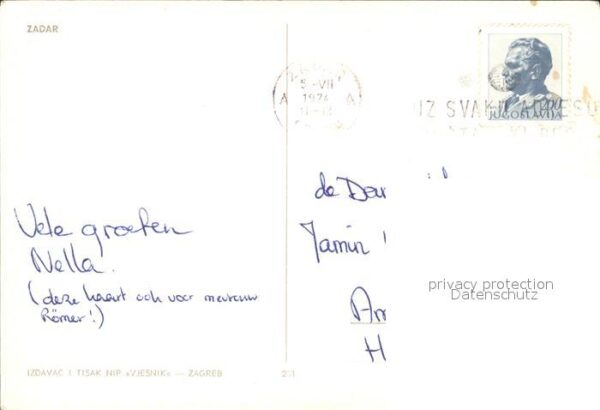 ZADAR
5.-VII
1974
A A
IZ SVAK
JUGOSLAVIJA
de Dar
Jamin
privacy protection
Datenschutz
An
H
Vele groeten
Nella.
(deze kaart ook voor mevrouw
Römer!)
IZDAVAČ I TISAK NIP »VJESNIK« — ZAGREB